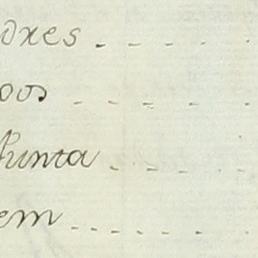 dres - - - -
oos - - - -
Punta - - - -
em - - - - - -